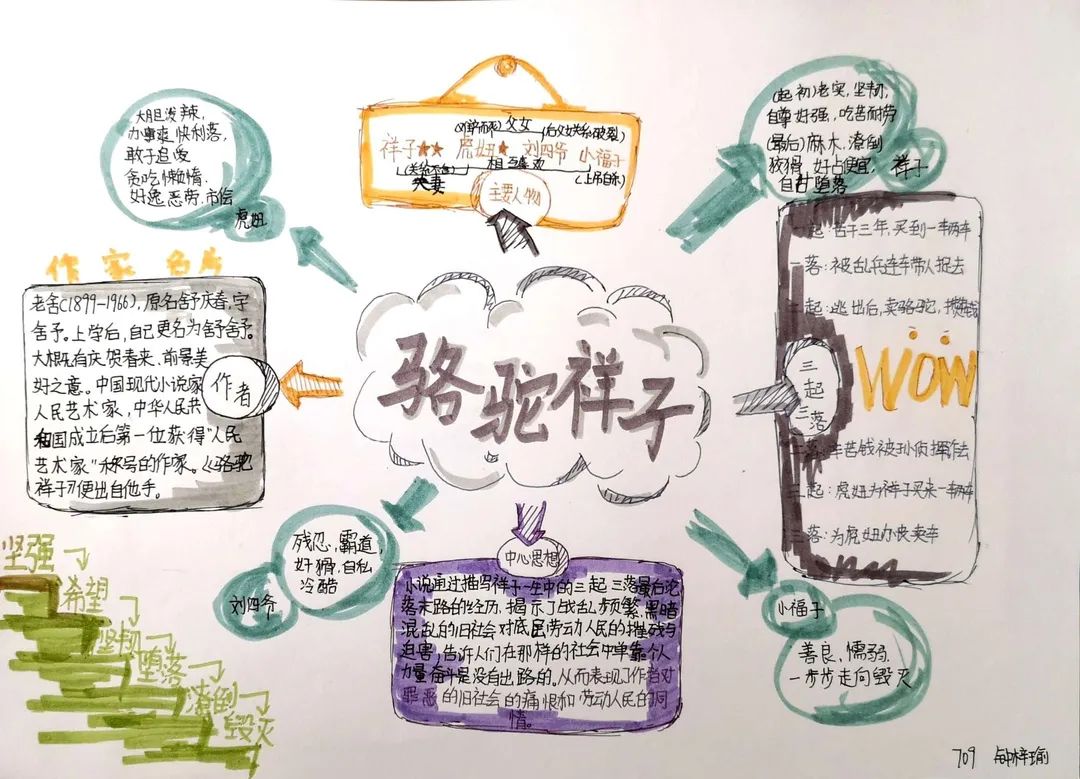 骆驼祥子
大胆泼辣,
办事爽快利落,
敢于追爱
贪吃懒惰
好逸恶劳,市侩
虎妞
父女
祥子★★ 虎妞★ 刘四爷 小福子
夫妻
(上吊自杀)
主要人物
(起初)老实,坚韧,
自尊好强,吃苦耐劳
(最后)麻木,潦倒
狡猾,好占便宜,
自甘堕落
祥子
作家名片
老舍(1899-1966),原名舒庆春,字
舍予。上学后,自己更名为舒舍予。
大概有庆贺春来、前景美
好之意。中国现代小说家
人民艺术家,中华人民共
和国成立后第一位获得"人民
艺术家"称号的作家。《骆驼
祥子》便出自他手。
作者
一起:苦干三年,买到一辆车
一落:被乱兵连车带人捉去
二起:逃出后,卖骆驼,攒钱
WOW
三起三落
二落:辛苦钱被孙侦探诈去
三起:虎妞为祥子买来一辆车
三落:为虎妞办丧卖车
残忍,霸道,
奸猾,自私
冷酷
刘四爷
中心思想
小说通过描写祥子一生中的三起三落最后沦
落末路的经历,揭示了战乱频繁、黑暗
混乱的旧社会对底层劳动人民的摧残与
迫害,告诉人们在那样的社会中单靠个人
力量奋斗是没有出路的。从而表现了作者对
罪恶的旧社会的痛恨和劳动人民的同
情。
小福子
善良,懦弱
一步步走向毁灭
坚强
希望
坚韧
堕落
潦倒
毁灭
709 钟梓瑜